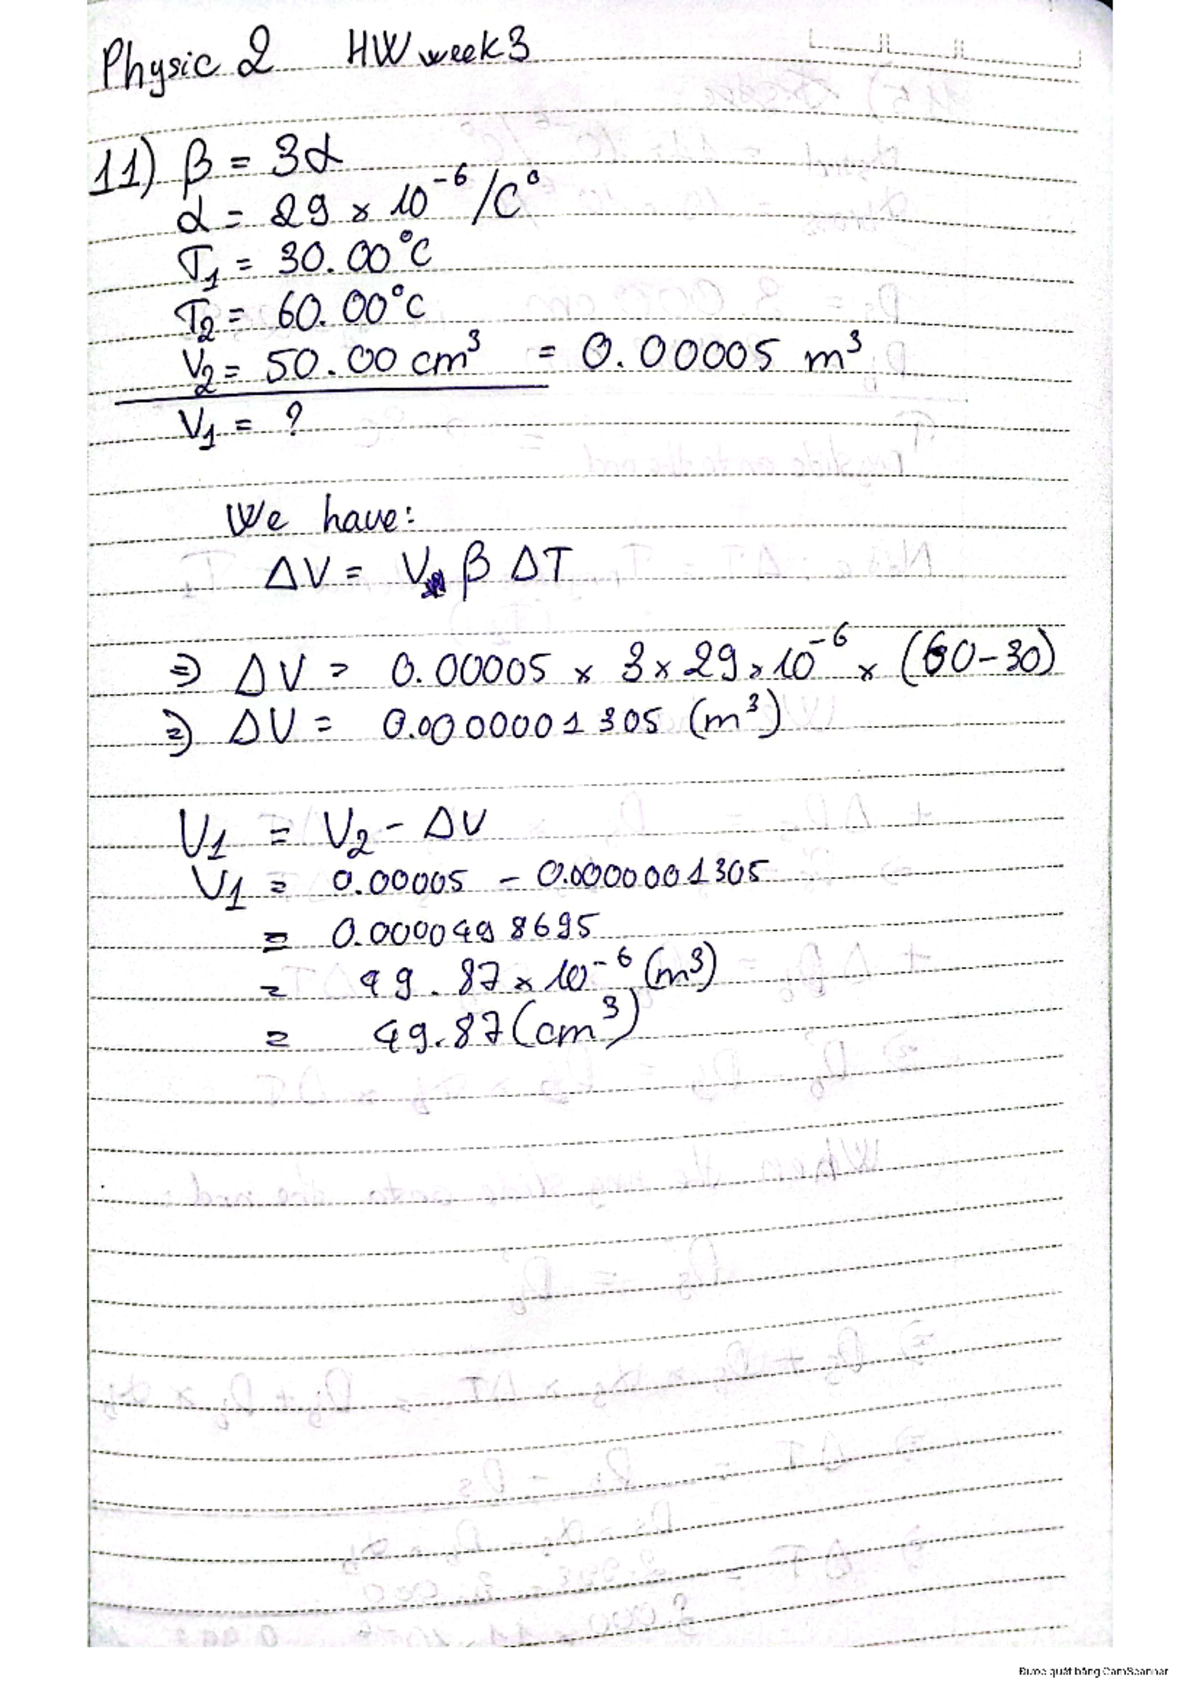 Physic 2 HW week 3
11) β = 3α
α = 29 × 10⁻⁶ /C°
T₁ = 30.00°C
T₂ = 60.00°C
V₂ = 50.00 cm³ = 0.00005 m³
V₁ = ?
We have:
ΔV = V β ΔT
=> ΔV = 0.00005 × 3 × 29 × 10⁻⁶ × (60-30)
=> ΔV = 0.0000001305 (m³)
V₁ = V₂ - ΔV
V₁ = 0.00005 - 0.0000001305
= 0.0000498695
= 49.87 × 10⁻⁶ (m³)
= 49.87 (cm³)
Được quét bằng CamScanner